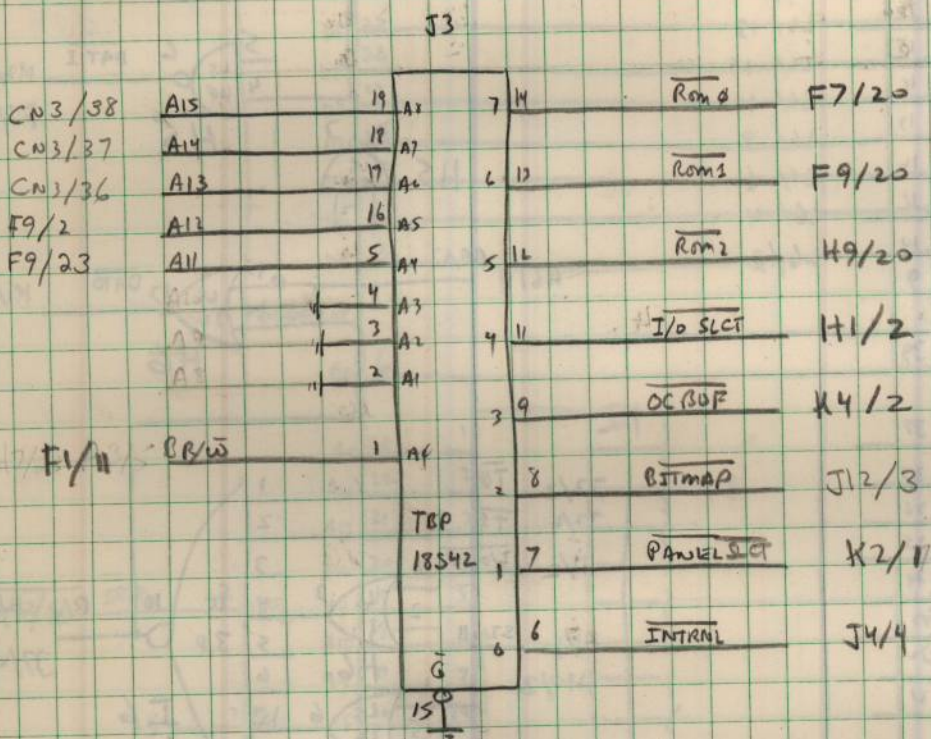 J3
CN3/38 A15 19 A8 7 14 Rom0 F7/20
CN3/37 A14 18 A7
CN3/36 A13 17 A6 6 13 Rom1 F9/20
F9/2 A12 16 A5
F9/23 A11 5 A4 5 12 Rom2 H9/20
4 A3
3 A2 4 11 I/O SLCT H1/2
2 A1
3 9 OCBUF K4/2
F1/11 BR/W 1 A0
2 8 BITMAP J12/3
TBP
18S42 1 7 PANELSLCT K2/1
0 6 INTRNL J4/4
G
15